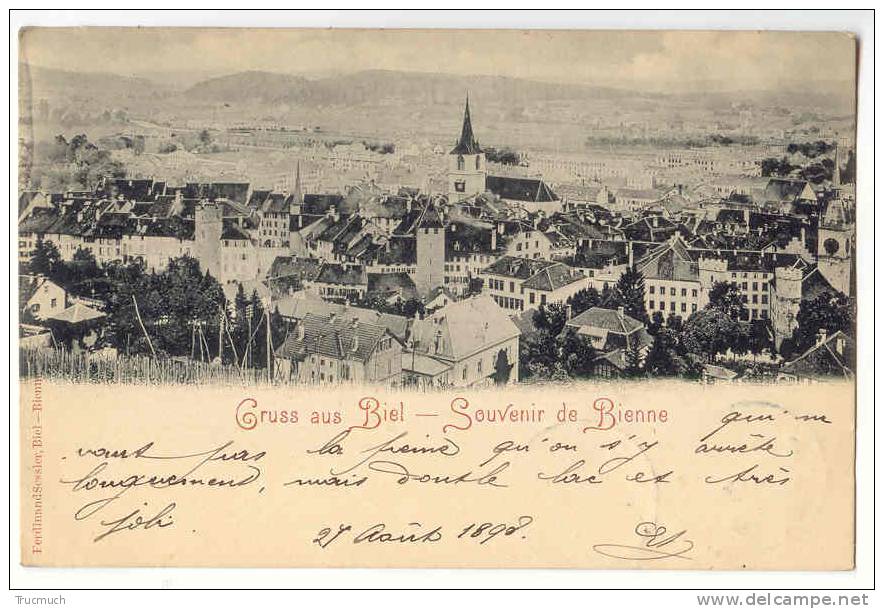 Gruss aus Biel — Souvenir de Bienne
qui m
vaut pas la peine qu'on s'y arrête
longuement, mais dont le lac est très
joli
27 Août 1898.
Ferdinand Sessler, Biel–Bienne
Trucmuch
www.delcampe.net